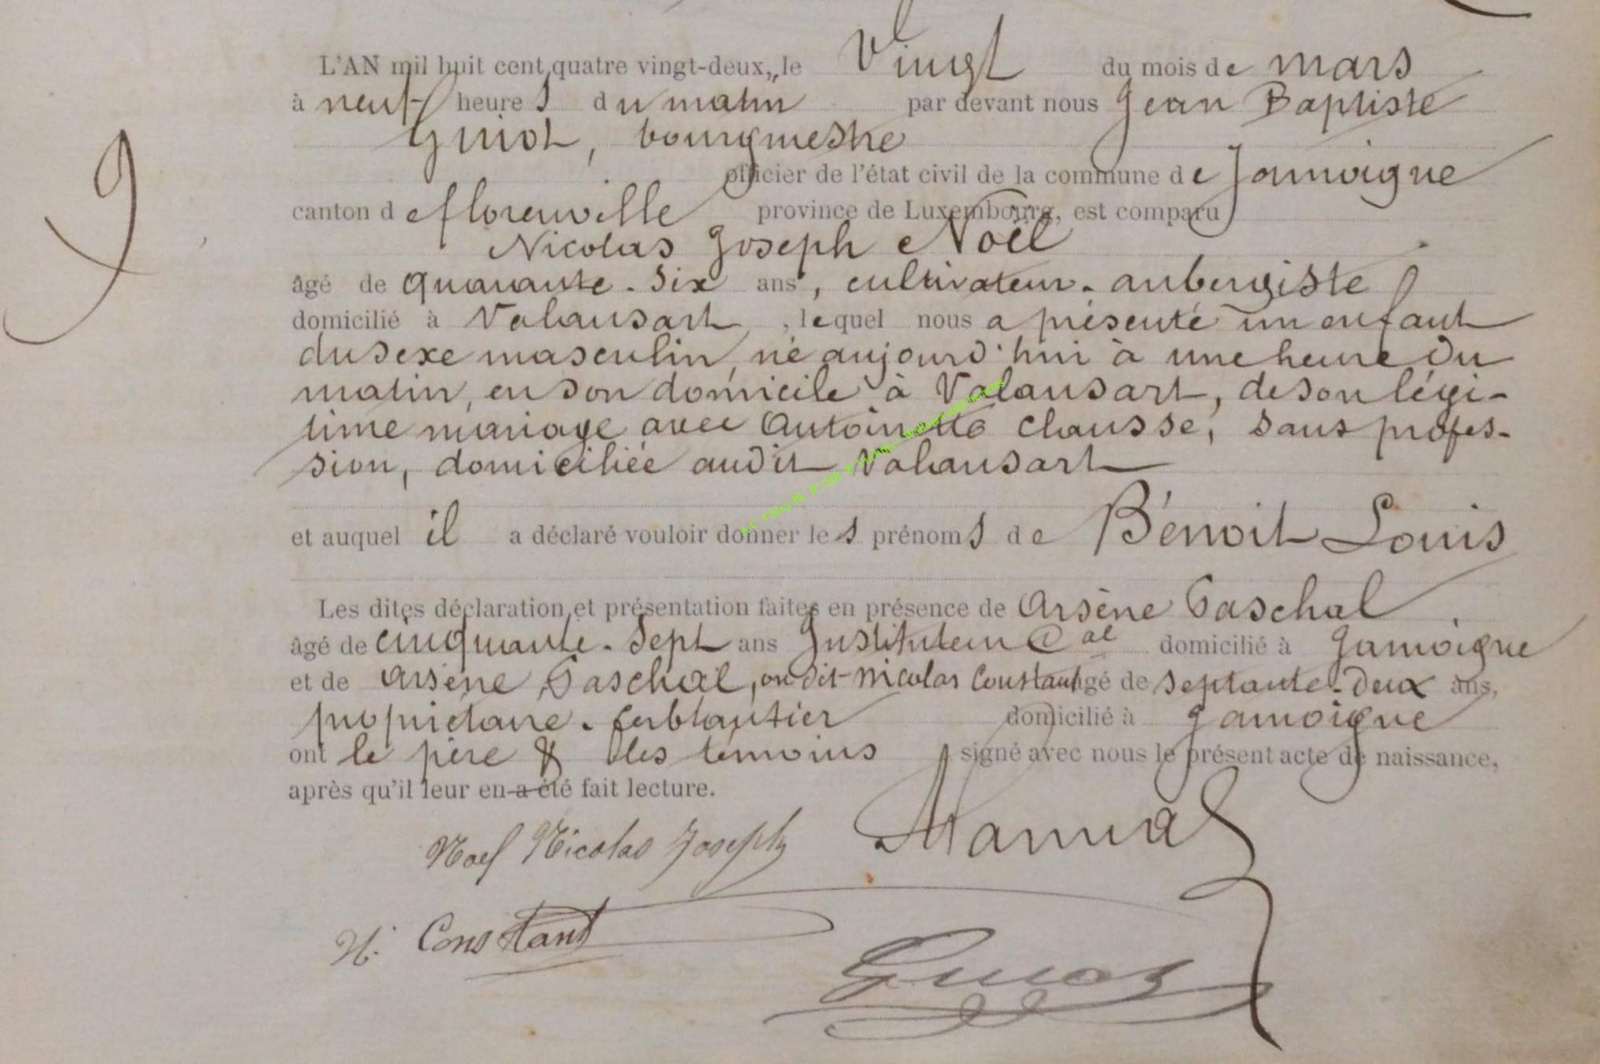 L'AN mil huit cent quatre vingt-deux, le Vingt du mois de mars
à neuf heures du matin par devant nous Jean Baptiste
Guiot, bourgmestre
officier de l'état civil de la commune de Jamoigne
canton de florenville province de Luxembourg, est comparu
Nicolas Joseph Noël
âgé de quarante-six ans, cultivateur-aubergiste
domicilié à Valansart, lequel nous a présenté un enfant
du sexe masculin, né aujourd'hui à une heure du
matin, en son domicile à Valansart, de son légi-
time mariage avec Antoinette Chausse, sans profes-
sion, domiciliée audit Valansart
et auquel il a déclaré vouloir donner les prénoms de Bénoit Louis
Les dites déclaration et présentation faites en présence de Arsène Paschal
âgé de cinquante-sept ans Instituteur Cal domicilié à Jamoigne
et de Arsène Paschal, on dit Nicolas Constant âgé de septante-deux ans,
propriétaire-ferblantier domicilié à Jamoigne
ont le père & les témoins signé avec nous le présent acte de naissance,
après qu'il leur en a été fait lecture.
Noel Nicolas Joseph
N. Constant
Guiot
9